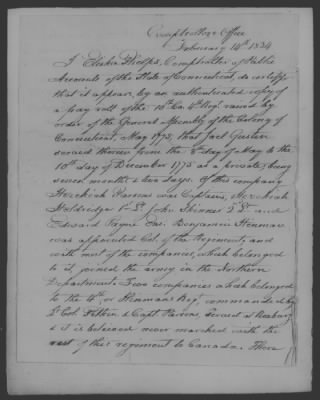 Comptrollers Office
February 14th 1834
I Elisha Phelps, Comptroller of Public
Accounts of the State of Connecticut, do certify
that it appears, by an authenticated copy of
a pay roll of the 10th Co. 4th Regt. raised by
order of the General Assembly of the Colony of
Connecticut, May 1775, that Joel
served therein from the 8th day of May to the
10th day of December 1775 as a private, being
seven months & two days. Of this company
Hezekiah Parsons was Captain, Hezekiah
Holdridge 1st Lt. John Skinner 2d Lt. and
Edward Payne Ens. Benjamin Hinman
was appointed Col. of the Regiment, and
with most of the companies, which belonged
to it, joined the army in the Northern
Department. Two companies which belonged
to the 4th, or Hinmans Regt, commanded by
Lt. Col. & Capt Parsons, served at Roxbury
& it is believed never marched with the
rest of this regiment to Canada. There